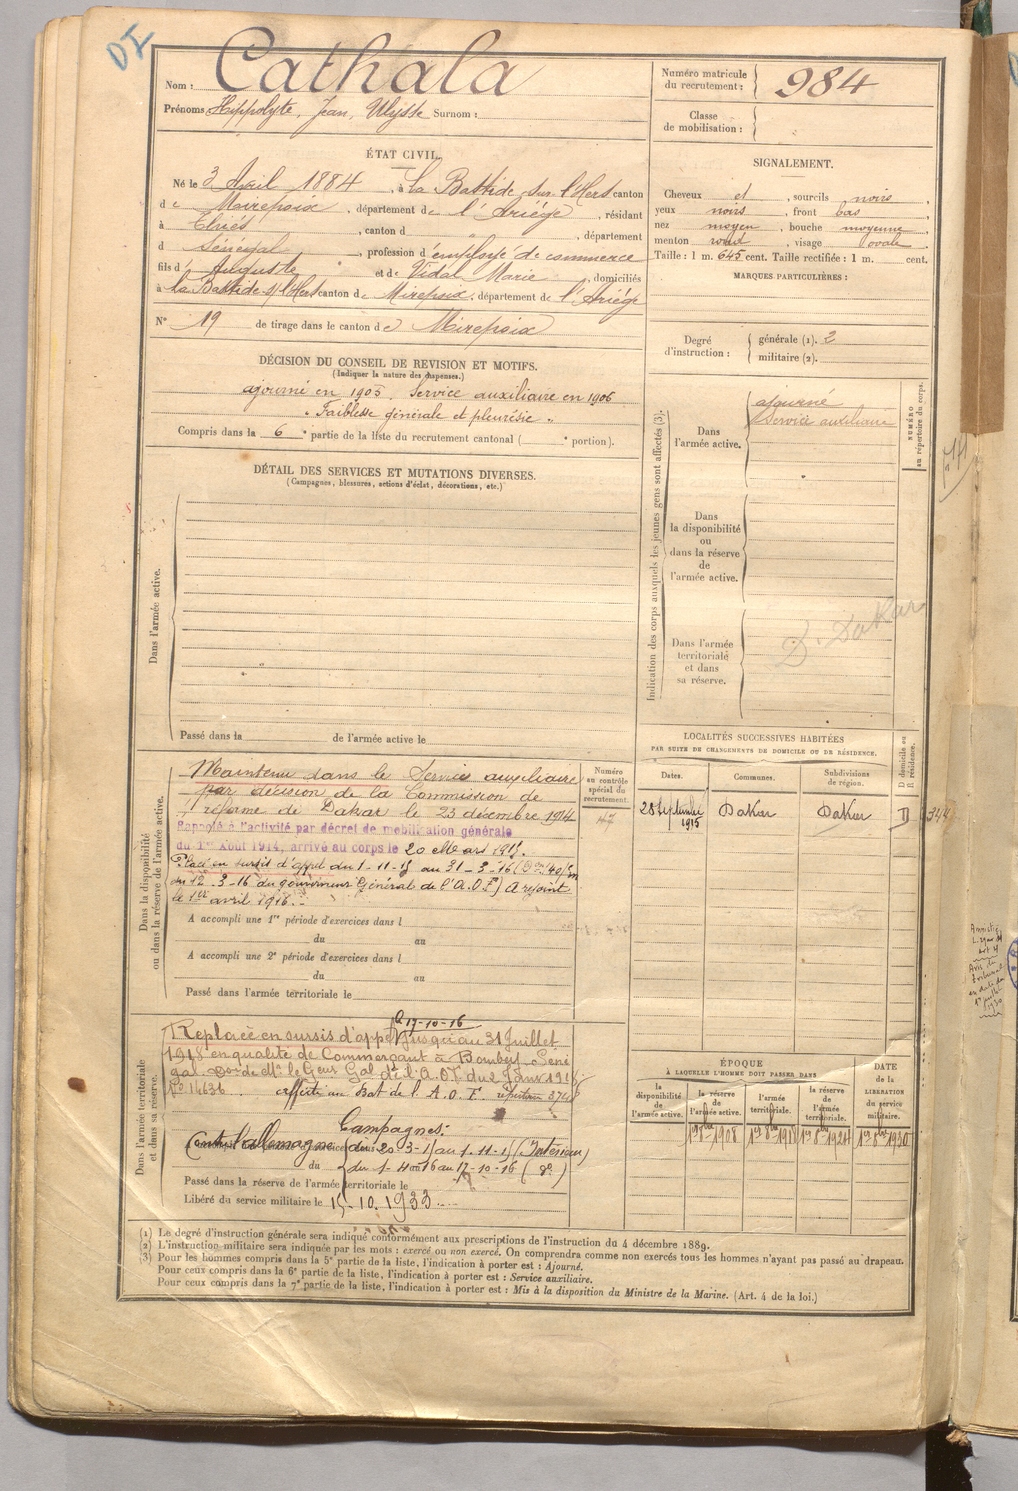 DI
Nom : Cathala
Prénoms Hippolyte, Jean, Ulysse Surnom :
Numéro matricule du recrutement : 984
Classe de mobilisation :
ÉTAT CIVIL.
Né le 3 Avril 1884, à La Bastide sur l'Hers canton
de Mirepoix, département de l'Ariège, résidant
à Thiés, canton d " département
d Sénégal, profession d'employé de commerce
fils d' Auguste et de Vidal Marie, domiciliés
à La Bastide s/l'Hers canton de Mirepoix, département de l'Ariége
N° 19 de tirage dans le canton de Mirepoix
SIGNALEMENT.
Cheveux et, sourcils noirs,
yeux noirs, front bas
nez moyen, bouche moyenne,
menton rond, visage ovale
Taille : 1 m. 645 cent. Taille rectifiée : 1 m. cent.
MARQUES PARTICULIÈRES :
Degré d'instruction : générale (1). 2
militaire (2).
DÉCISION DU CONSEIL DE REVISION ET MOTIFS.
(Indiquer la nature des dispenses.)
ajourné en 1905. Service auxiliaire en 1906
" Faiblesse générale et pleurésie "
Compris dans la 6e partie de la liste du recrutement cantonal ( e portion).
Indication des corps auxquels les jeunes gens sont affectés (3).
Dans l'armée active.
ajourné
Service auxiliaire
NUMÉRO au répertoire du corps.
Dans la disponibilité ou dans la réserve de l'armée active.
Dans l'armée territoriale et dans sa réserve.
D. Dakar
DÉTAIL DES SERVICES ET MUTATIONS DIVERSES.
(Campagnes, blessures, actions d'éclat, décorations, etc.)
Dans l'armée active.
Passé dans la de l'armée active le
Dans la disponibilité ou dans la réserve de l'armée active.
Maintenu dans le Service auxiliaire
par décision de la Commission de
réforme de Dakar le 23 décembre 1914
Rappelé à l'activité par décret de mobilisation générale
du 1er Août 1914, arrivé au corps le 20 Mars 1915.
Placé en sursis d'appel du 1-11-15 au 31-3-16
du 12-3-16 du gouverneur Général de l'A.O.F) A rejoint
le 1er avril 1916.
A accompli une 1re période d'exercices dans l
du au
A accompli une 2e période d'exercices dans l
du au
Passé dans l'armée territoriale le
Numéro au contrôle spécial du recrutement.
LOCALITÉS SUCCESSIVES HABITÉES
PAR SUITE DE CHANGEMENTS DE DOMICILE OU DE RÉSIDENCE.
Dates. Communes. Subdivisions de région. D domicile ou R résidence.
28 Septembre 1915 Dakar Dakar D 344
Dans l'armée territoriale et dans sa réserve.
le 17-10-16
Replacé en sursis d'appel jusqu'au 31 Juillet
1918 en qualité de Commerçant à Bambey Séné
gal de Mr le Geur Gal de l'A.O.F du 2 Janv 1918
No 11636. affecté au Bat de l'A.O.F.
Campagnes :
Contre l'allemagne du 20-3-15 au 1-11-15 (Intérieur)
du 1-4-16 au 17-10-16 (do)
Passé dans la réserve de l'armée territoriale le
Libéré du service militaire le 15-10.1933
ÉPOQUE
À LAQUELLE L'HOMME DOIT PASSER DANS
la disponibilité de l'armée active. la réserve de l'armée active. l'armée territoriale. la réserve de l'armée territoriale.
DATE de la LIBÉRATION du service militaire.
1er 8bre 1908 1er 8bre 1918 1er 8bre 1924 1er 8bre 1930
Amnistié
Avis du
tribunal
en date du
1er juillet
1930
(1) Le degré d'instruction générale sera indiqué conformément aux prescriptions de l'instruction du 4 décembre 1889.
(2) L'instruction militaire sera indiquée par les mots : exercé ou non exercé. On comprendra comme non exercés tous les hommes n'ayant pas passé au drapeau.
(3) Pour les hommes compris dans la 5e partie de la liste, l'indication à porter est : Ajourné.
Pour ceux compris dans la 6e partie de la liste, l'indication à porter est : Service auxiliaire.
Pour ceux compris dans la 7e partie de la liste, l'indication à porter est : Mis à la disposition du Ministre de la Marine. (Art. 4 de la loi.)